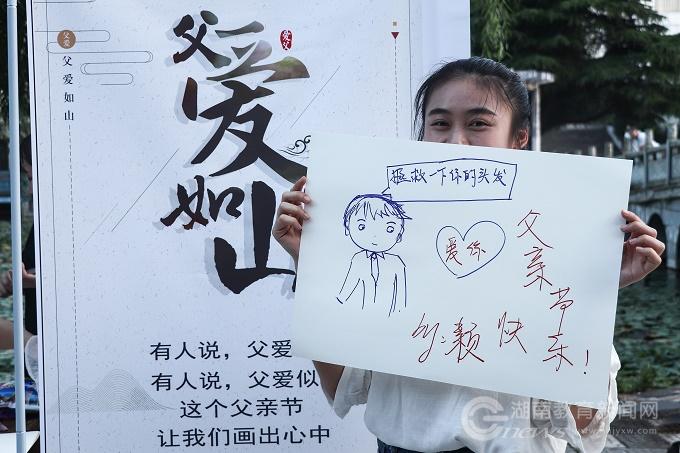 父爱
父爱如山
父爱如山
有人说，父爱
有人说，父爱似
这个父亲节
让我们画出心中
拯救一下你的头发
爱你
父亲节
快乐!
湖南教育新闻网